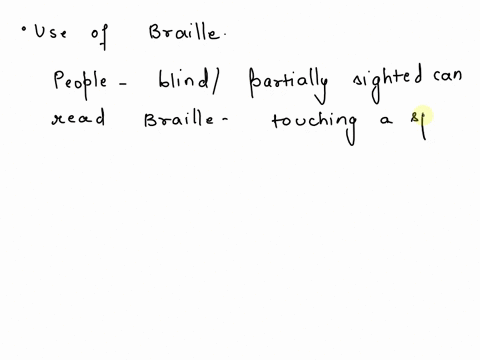 • Use of Braille.
People - blind/ partially sighted can
read Braille - touching a sp